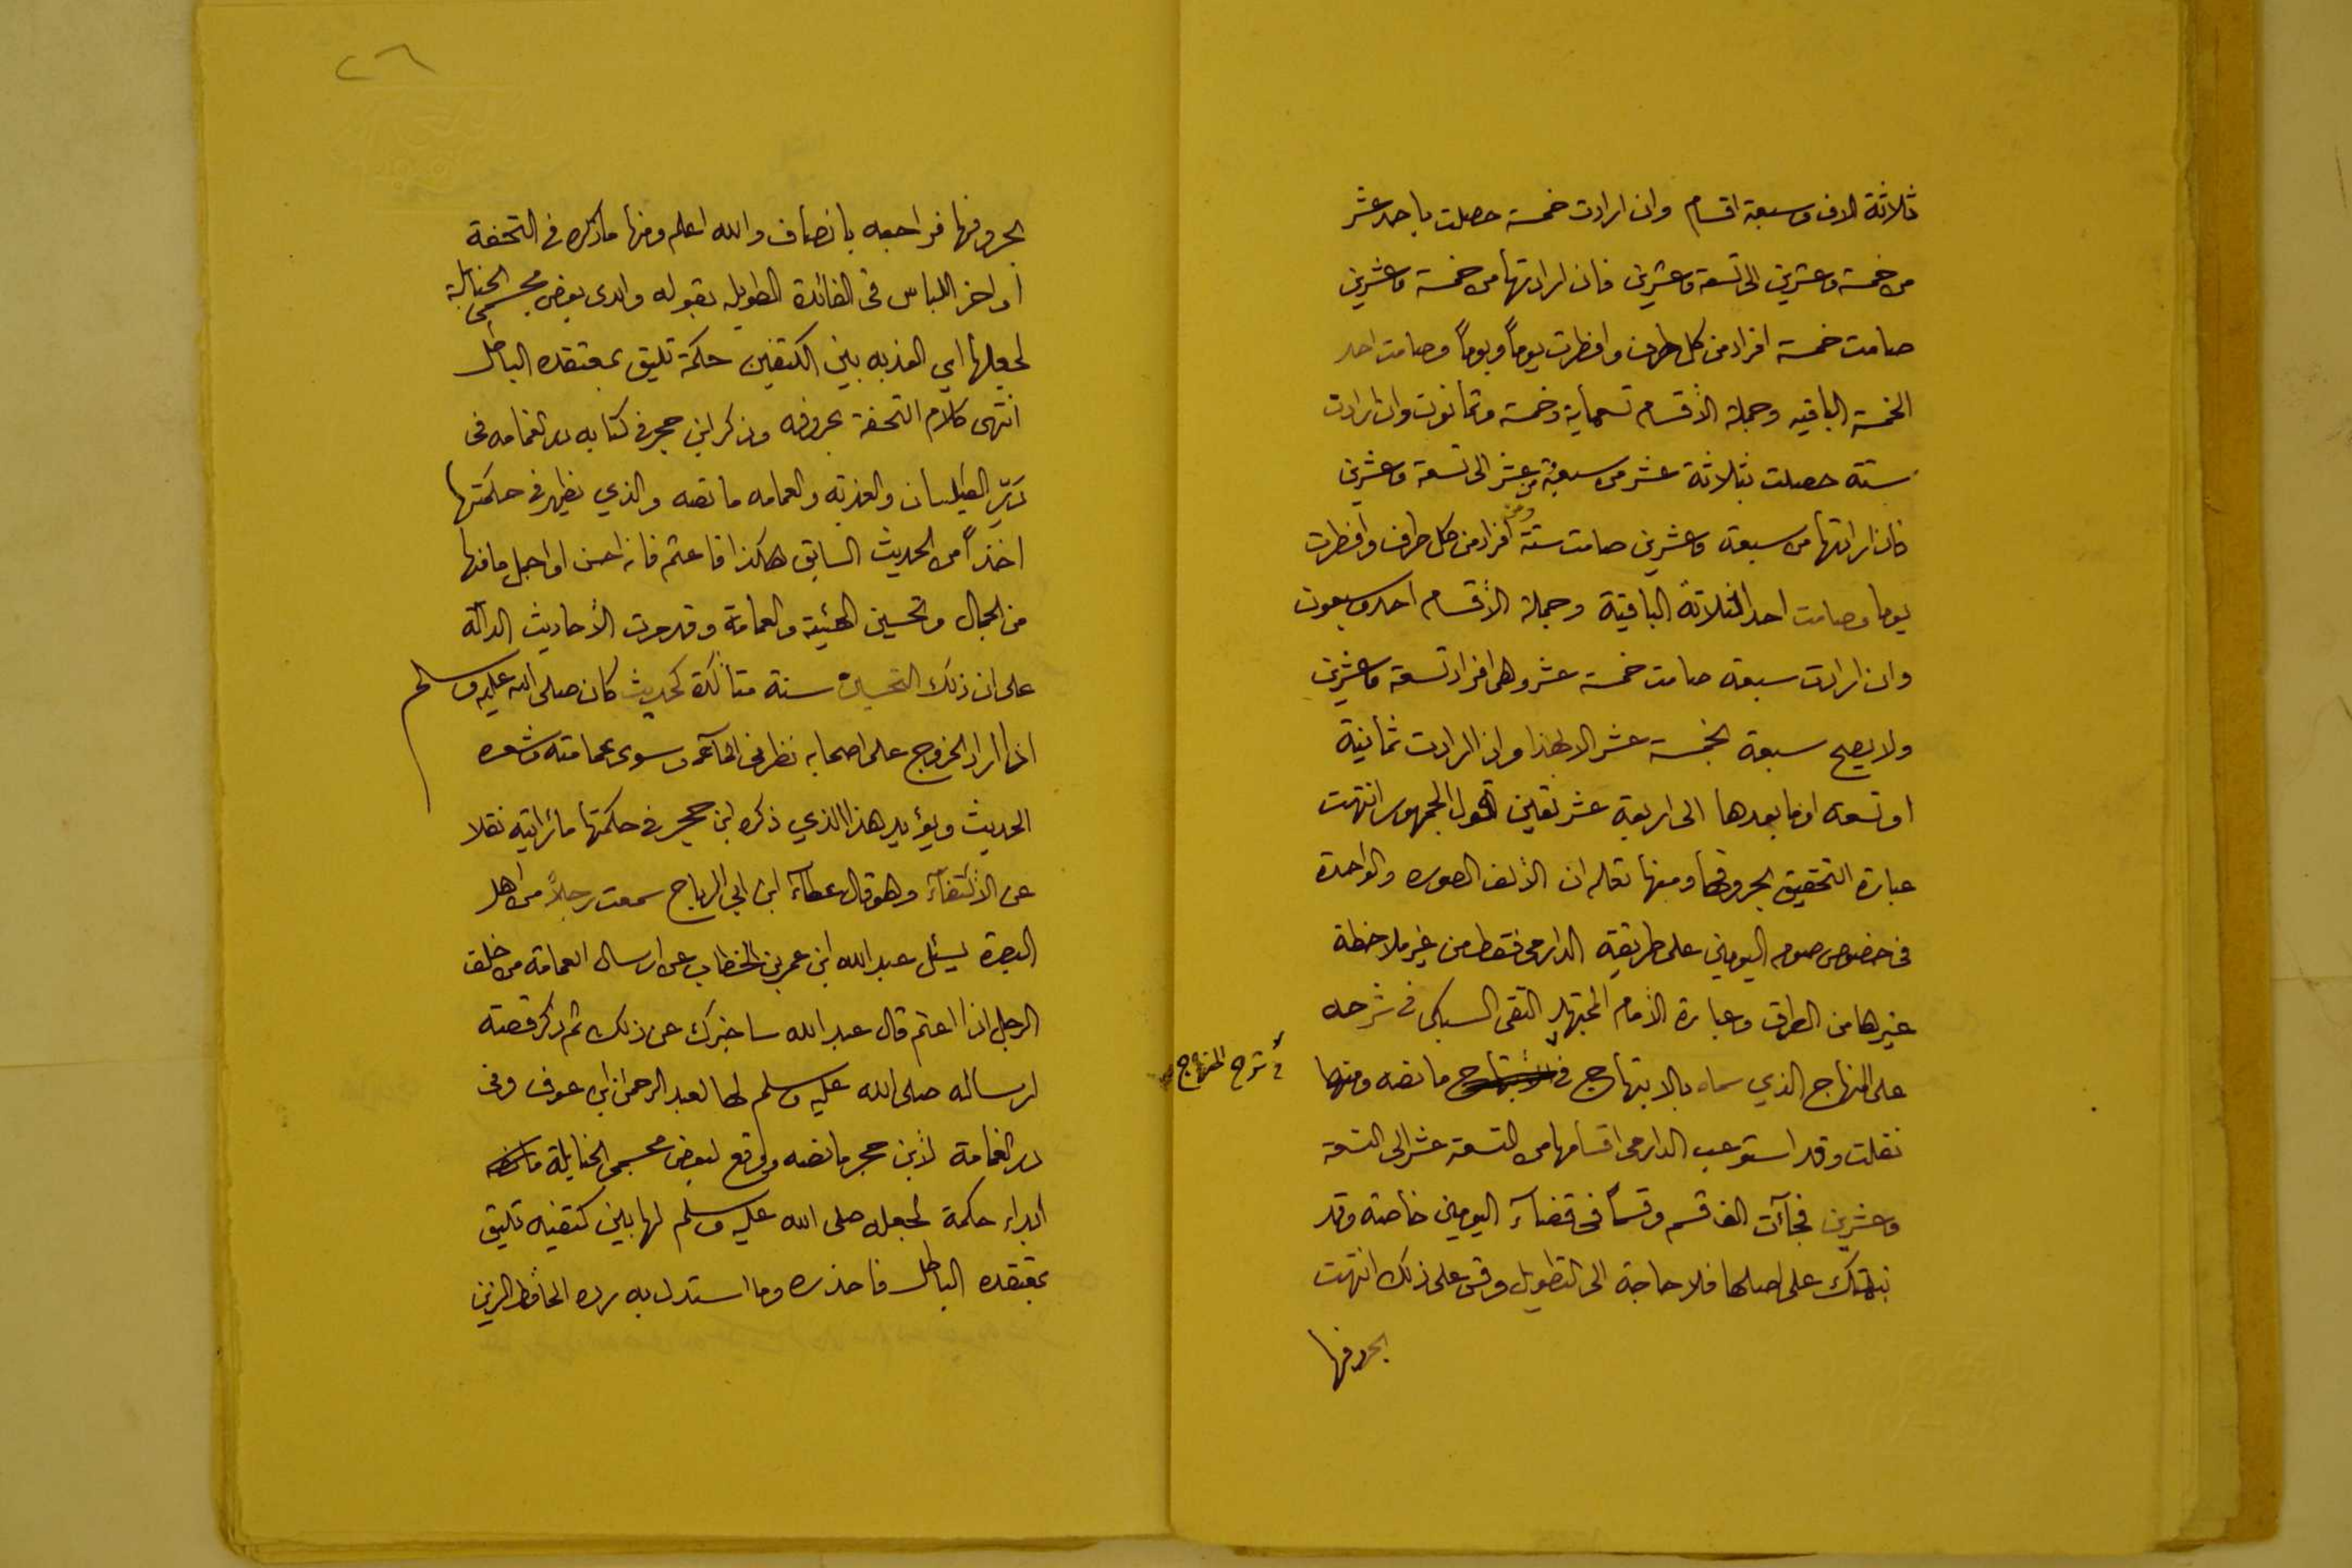 ثلاثة الاف وسبعة اقسام وان ارادت خمسة حصلت باحد عشر
من خمسة وعشرين الى تسعة وعشرين فان ارادتها من خمسة وعشرين
صامت خمسة افراد من كل طرف وافطرت يوماً ويوماً وصامت احد
الخمسة الباقيه وجملة الأقسام تسعماية وخمسة وثمانون وان ارادت
ستة حصلت بثلاثة عشر من سبعة عشر الى تسعة وعشرين
فان ارادتها من سبعة وعشرين صامت ستة افراد من كل طرف وافطرت
يوما وصامت احد الثلاثة الباقية وجملة الأقسام احد وسبعون
وان ارادت سبعة صامت خمسة عشر وهى افراد تسعة وعشرين
ولا يصح سبعة بخمسة عشر الا لهذا وان ارادت ثمانية
او تسعه او ما بعدها الى اربعة عشر تعين قول الجمهور انتهت
عبارة التحقيق بحروفها ومنها تعلم ان الألف الصوره والواحدة
فى خصوص صوم اليومين على طريقة الدارمى فقط من غير ملاحظة
غيرها من الطرق وعبارة الأمام المجتهد التقى السبكى فى شرحه
على المنهاج الذي سماه بالابتهاج فى ما نصه ومنها
شرح المنهاج
نقلت وقد استوعب الدارمى اقسامها من التسعة عشر الى التسعة
وعشرين فجآءت الف قسم وقسماً فى قضآء اليومين خاصة وقد
نبهتك على اصلها فلا حاجة الى التطويل وقس على ذلك انتهت
بحروفها
٢٦
بحروفها فراجعه بانصاف والله اعلم ومنها ما ذكره فى التحفة
اواخر اللباس فى الفائدة الطويله بقوله وابدى بعض مجسمى الحنابلة
لجعلها اي العذبه بين الكتفين حكمة تليق بمعتقده الباطل
انتهى كلام التحفة بحروفه وذكر ابن حجر فى كتابه در الغمامه فى
درّ الطيلسان والعذبه والعمامه ما نصه والذي يظهر فى حكمتها
اخذاً من الحديث السابق هكذا فاعتم فانه احسن او اجمل ما فيها
من الجمال وتحسين الهيئة والعمامة وقد مرت الأحاديث الدالة
على ان ذلك التحسين سنة متأكدة كحديث كان صلى الله عليه وسلم
اذا اراد الخروج على اصحابه نظر فى المآء وسوى عمامته وشعره
الحديث ويؤيد هذا الذي ذكره ابن حجر فى حكمتها ما رايته نقلا
عن الأكتفآء وهو قال عطآء ابن ابي الرباح سمعت رجلاً من اهل
البصرة يسئل عبد الله ابن عمر بن الخطاب عن ارسال العمامة من خلف
الرجل اذا اعتم قال عبد الله ساخبرك عن ذلك ثم ذكر قصته
ارساله صلى الله عليه وسلم لها لعبد الرحمن ابن عوف وفى
در الغمامة لأبن حجر ما نصه ووقع لبعض مجسمى الحنابلة
ابداء حكمة لجعله صلى الله عليه وسلم لها بين كتفيه تليق
بمعتقده الباطل فاحذره وما استدل به رده الحافظ الزين